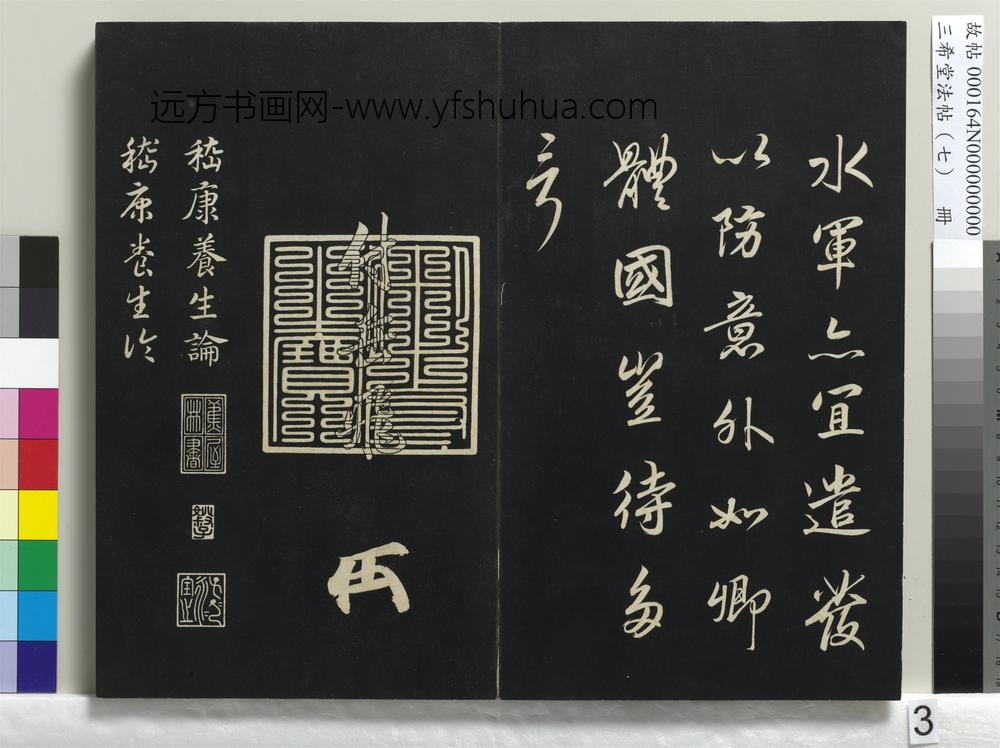 远方书画网-www.yfshuhua.com
水軍亦宜遣發
以防意外如卿
體國豈待多
言
付岳飛
嵇康養生論
嵇康养生论
故帖 000164N000000000
三希堂法帖（七） 冊
3